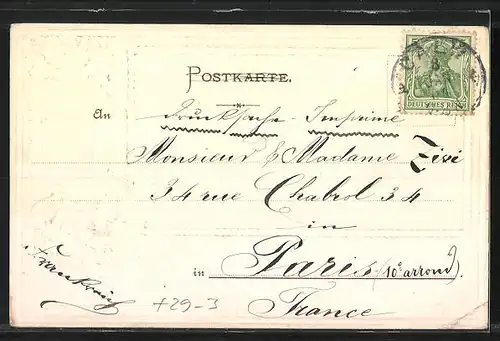 POSTKARTE.
An Drucksache - Imprimé
Monsieur & Madame Zivi
34 rue Chabrol 34
in
in Paris (10e arrond)
France
Frankreich
+29-3
DEUTSCHES REICH